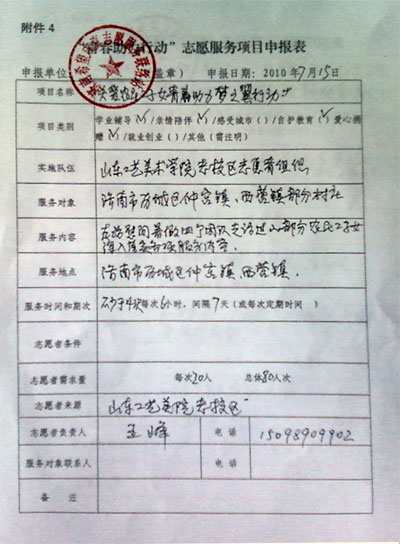 附件 4
青春助力行动”志愿服务项目申报表
申报单位 盖章） 申报日期：2010年7月15日
项目名称 关爱农民工子女青春助力梦之翼行动
项目类别 学业辅导（√）/亲情陪伴（√）/感受城市（ ）/自护教育（√）爱心捐
赠（√）/就业创业（ ）/其他（需注明）
实施队伍 山东工艺美术学院 校区志愿者组织
服务对象 济南市历城区仲宫镇、西营镇部分村庄
服务内容 在 暑假 部分农民工子女
服务地点 济南市历城区仲宫镇西营镇
服务时间和期次 不少于4次每次6小时，间隔7天（或每次定期时间 ）
志愿者条件
志愿者需求量 每次20人 总体80人次
志愿者来源 山东工艺美院 校区
志愿者负责人 王峰 电 话 15098909902
服务对象联系人 电 话
备 注